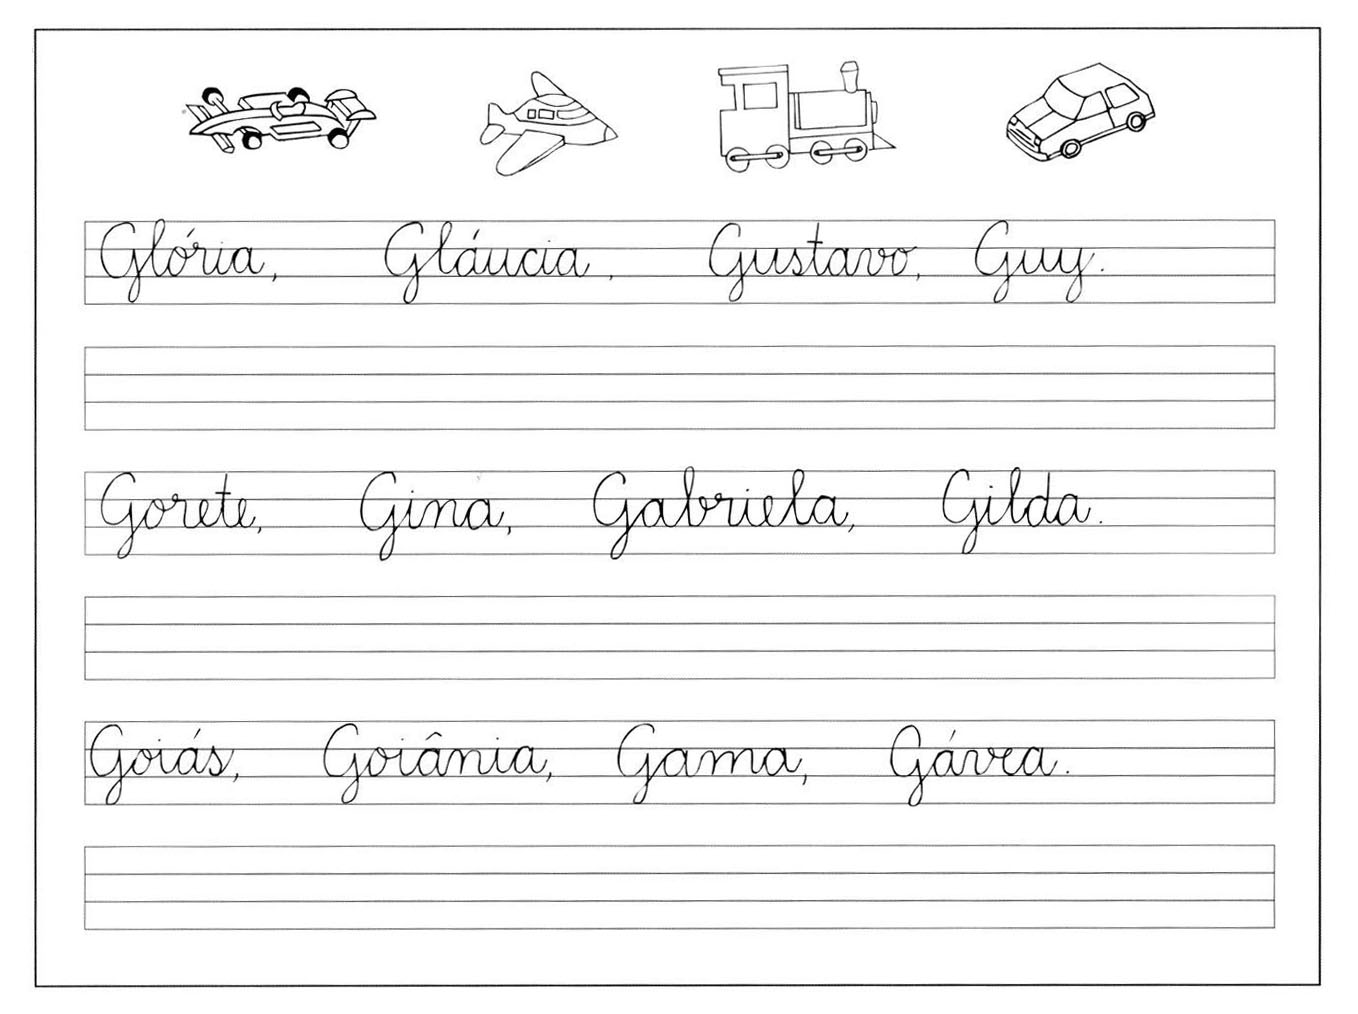 Glória, Gláucia, Gustavo, Guy.
Gorete, Gina, Gabriela, Gilda.
Goiás, Goiânia, Gama, Gávea.